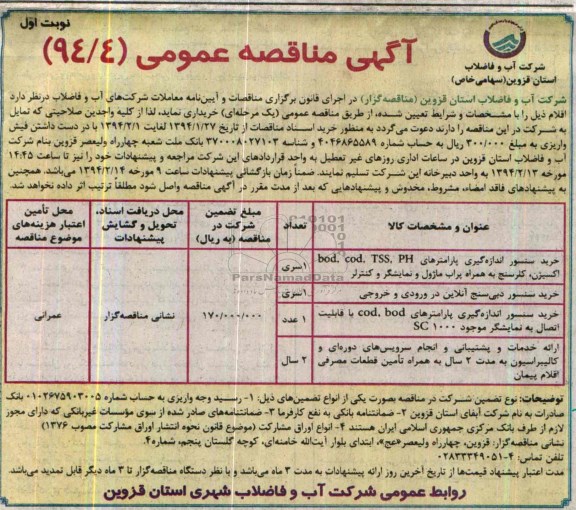 نوبت اول
آگهی مناقصه عمومی (۹۴/۴)
شرکت آب و فاضلاب
استان قزوین (سهامی خاص)
شرکت آب و فاضلاب استان قزوین (مناقصه‌گزار) در اجرای قانون برگزاری مناقصات و آیین‌نامه معاملات شرکت‌های آب و فاضلاب درنظر دارد
اقلام ذیل را با مشخصات و شرایط تعیین شده، از طریق مناقصه عمومی (یک مرحله‌ای) خریداری نماید، لذا از کلیه واجدین صلاحیتی که تمایل
به شرکت در این مناقصه را دارند دعوت می‌گردد به منظور خرید اسناد مناقصات از تاریخ ۱۳۹۴/۱/۲۷ لغایت ۱۳۹۴/۲/۱ با در دست داشتن فیش
واریزی به مبلغ ۳۰۰/۰۰۰ ریال به حساب شماره ۴۰۴۶۸۶۵۵۸۹ و شناسه ۳۷۰۰۰۸۰۲۷۱۰۳ بانک ملت شعبه چهارراه ولیعصر قزوین بنام شرکت
آب و فاضلاب استان قزوین در ساعات اداری روزهای غیر تعطیل به واحد قراردادهای این شرکت مراجعه و پیشنهادات خود را نیز تا ساعت ۱۴:۴۵
مورخه ۱۳۹۴/۲/۱۳ به واحد دبیرخانه این شرکت تسلیم نمایند. ضمناً زمان بازگشائی پیشنهادات ساعت ۹ مورخه ۱۳۹۴/۲/۱۴ می‌باشد. همچنین
به پیشنهادهای فاقد امضاء، مشروط، مخدوش و پیشنهادهایی که بعد از مدت مقرر در آگهی مناقصه واصل شود مطلقاً ترتیب اثر داده نخواهد شد.
عنوان و مشخصات کالا
تعداد
مبلغ تضمین شرکت در مناقصه (به ریال)
محل دریافت اسناد، تحویل و گشایش پیشنهادات
محل تأمین اعتبار هزینه‌های موضوع مناقصه
خرید سنسور اندازه‌گیری پارامترهای bod, cod, TSS, PH
اکسیژن، کلرسنج به همراه پراب ماژول و نمایشگر و کنترلر
۱سری
خرید سنسور دبی‌سنج آنلاین در ورودی و خروجی
۱سری
خرید سنسور اندازه‌گیری پارامترهای cod, bod با قابلیت
اتصال به نمایشگر موجود SC ۱۰۰۰
۱ عدد
ارائه خدمات و پشتیبانی و انجام سرویس‌های دوره‌ای و
کالیبراسیون به مدت ۲ سال به همراه تأمین قطعات مصرفی
اقلام پیمان
۲ سال
۱۷۰/۰۰۰/۰۰۰
نشانی مناقصه‌گزار
عمرانی
ParsNamadData
توضیحات: نوع تضمین شرکت در مناقصه بصورت یکی از انواع تضمین‌های ذیل: ۱- رسید وجه واریزی به حساب شماره ۰۱۰۲۶۷۵۹۰۳۰۰۵ بانک
صادرات به نام شرکت آبفای استان قزوین ۲- ضمانتنامه بانکی به نفع کارفرما ۳- ضمانتنامه‌های صادر شده از سوی مؤسسات غیربانکی که دارای مجوز
لازم از طرف بانک مرکزی جمهوری اسلامی ایران هستند ۴- انواع اوراق مشارکت (موضوع قانون نحوه انتشار اوراق مشارکت مصوب ۱۳۷۶)
نشانی مناقصه‌گزار: قزوین، چهارراه ولیعصر«عج»، ابتدای بلوار آیت‌الله خامنه‌ای، کوچه گلستان پنجم، شماره۴.
تلفن تماس: ۴-۰۲۸۳۳۳۴۹۰۵۱
مدت اعتبار پیشنهاد قیمت‌ها از تاریخ آخرین روز ارائه پیشنهادات به مدت ۳ ماه می‌باشد و با نظر دستگاه مناقصه‌گزار تا ۳ ماه دیگر قابل تمدید می‌باشد.
روابط عمومی شرکت آب و فاضلاب شهری استان قزوین